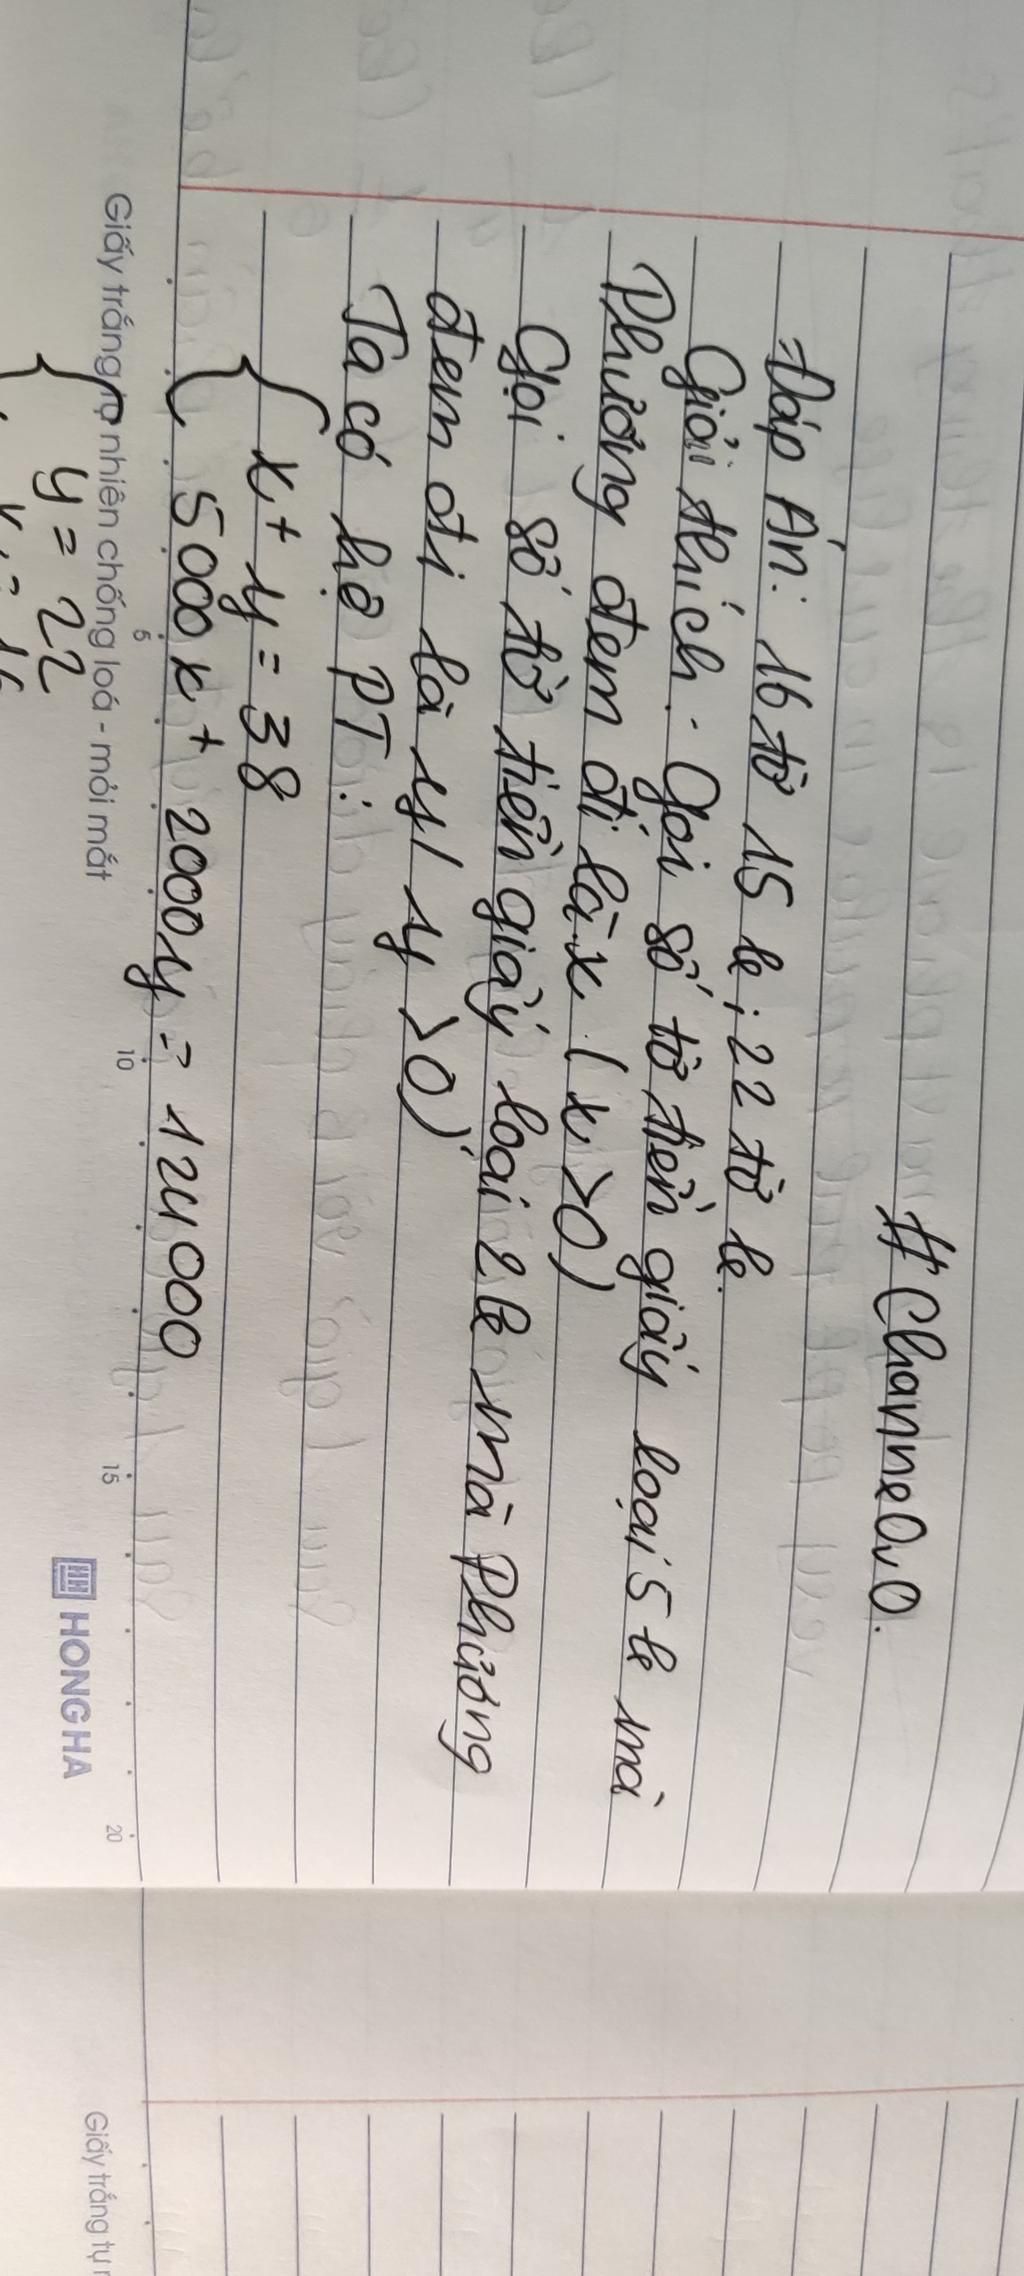 #ChanneOvO.
Đáp Án: 16 tờ 15 le; 22 tờ le.
Giải thích: Gọi số tờ tiền giấy loại 5 le mà
Phương đem đi là x (x >0)
Gọi số tờ tiền giấy loại 2 le mà Phương
đem đi là y ( y >0)
Ta có hệ PT:
{ x + y = 38
{ 5000x + 2000y = 124000
Giấy trắng tự nhiên chống loá - mỏi mắt
5 10 15 20
HONG HA
{ y = 22
Giấy trắng tự